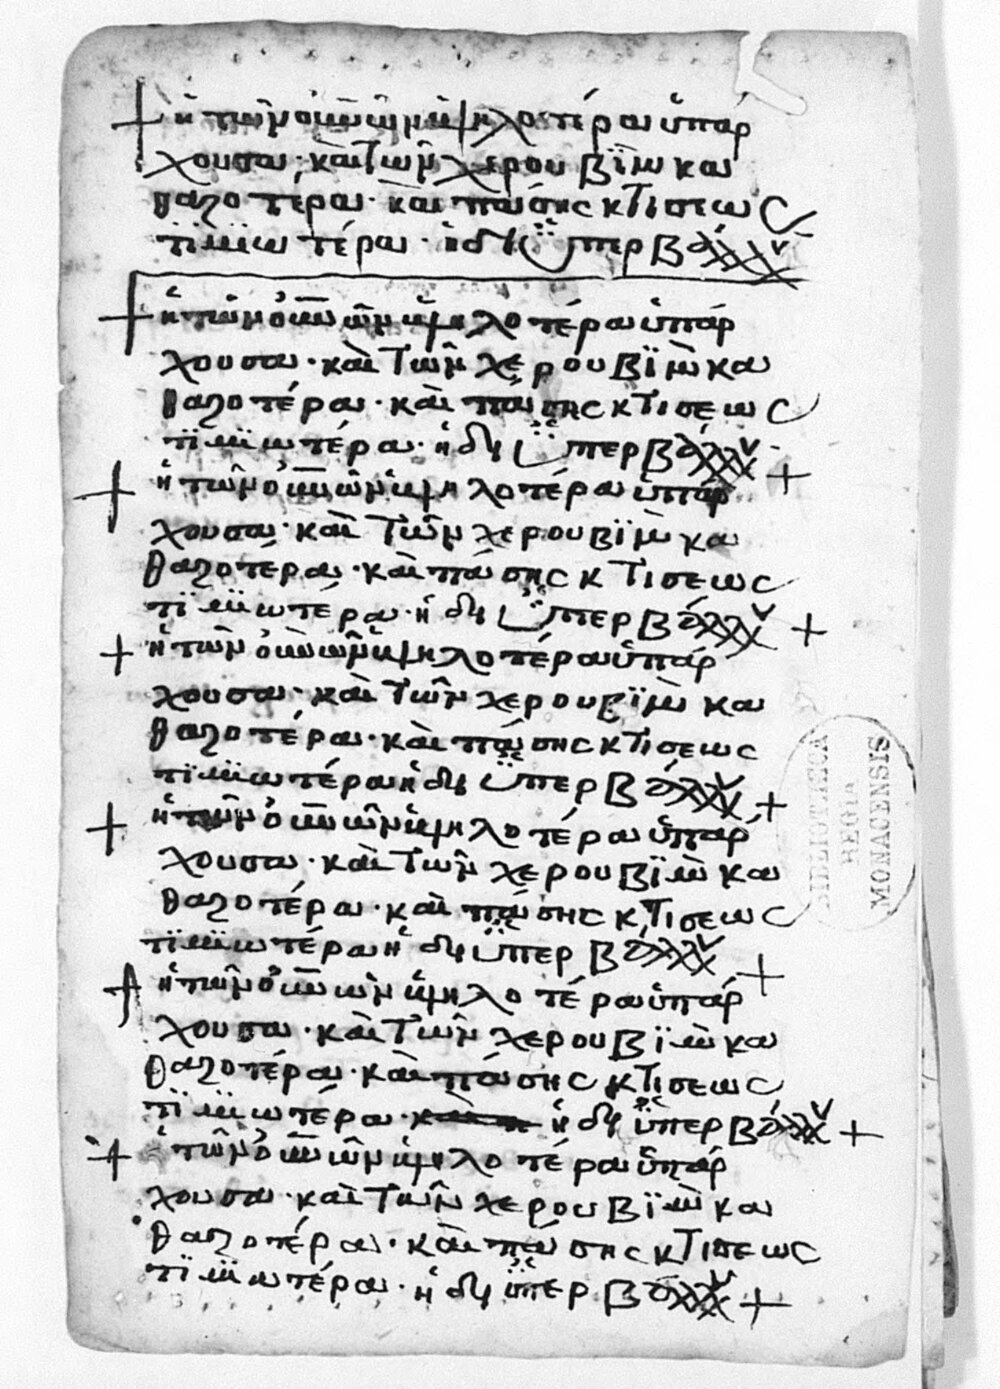 + ἡ τῶν οὐνῶν ὑψηλοτέρα ὑπάρ
χουσα· καὶ τῶν χερουβϊμ κα
θαροτέρα· καὶ πάσης κτισεως
τϊμϊωτέρα· ἡ δι ὑπερβάλλ
+ ἡ τῶν οὐνῶν ὑψηλοτέρα ὑπάρ
χουσα· καὶ τῶν χερουβϊμ κα
θαροτέρα· καὶ πάσης κτισεως
τϊμϊωτέρα· ἡ δι ὑπερβάλλ +
+ ἡ τῶν οὐνῶν ὑψηλοτέρα ὑπάρ
χουσα· καὶ τῶν χερουβϊμ κα
θαροτέρα· καὶ πάσης κτισεως
τϊμϊωτέρα· ἡ δι ὑπερβάλλ +
+ ἡ τῶν οὐνῶν ὑψηλοτέρα ὑπάρ
χουσα· καὶ τῶν χερουβϊμ κα
θαροτέρα· καὶ πάσης κτισεως
τϊμϊωτέρα ἡ δι ὑπερβάλλ +
+ ἡ τῶν οὐνῶν ὑψηλοτέρα ὑπάρ
χουσα· καὶ τῶν χερουβϊμ κα
θαροτέρα· καὶ πάσης κτισεως
τϊμϊωτέρα ἡ δι ὑπερβάλλ +
+ ἡ τῶν οὐνῶν ὑψηλοτέρα ὑπάρ
χουσα· καὶ τῶν χερουβϊμ κα
θαροτέρα· καὶ πάσης κτισεως
τϊμϊωτέρα· ἡ δι ὑπερβάλλ +
+ ἡ τῶν οὐνῶν ὑψηλοτέρα ὑπάρ
χουσα· καὶ τῶν χερουβϊμ κα
θαροτέρα· καὶ πάσης κτισεως
τϊμϊωτέρα· ἡ δι ὑπερβάλλ +
BIBLIOTHECA
REGIA
MONACENSIS